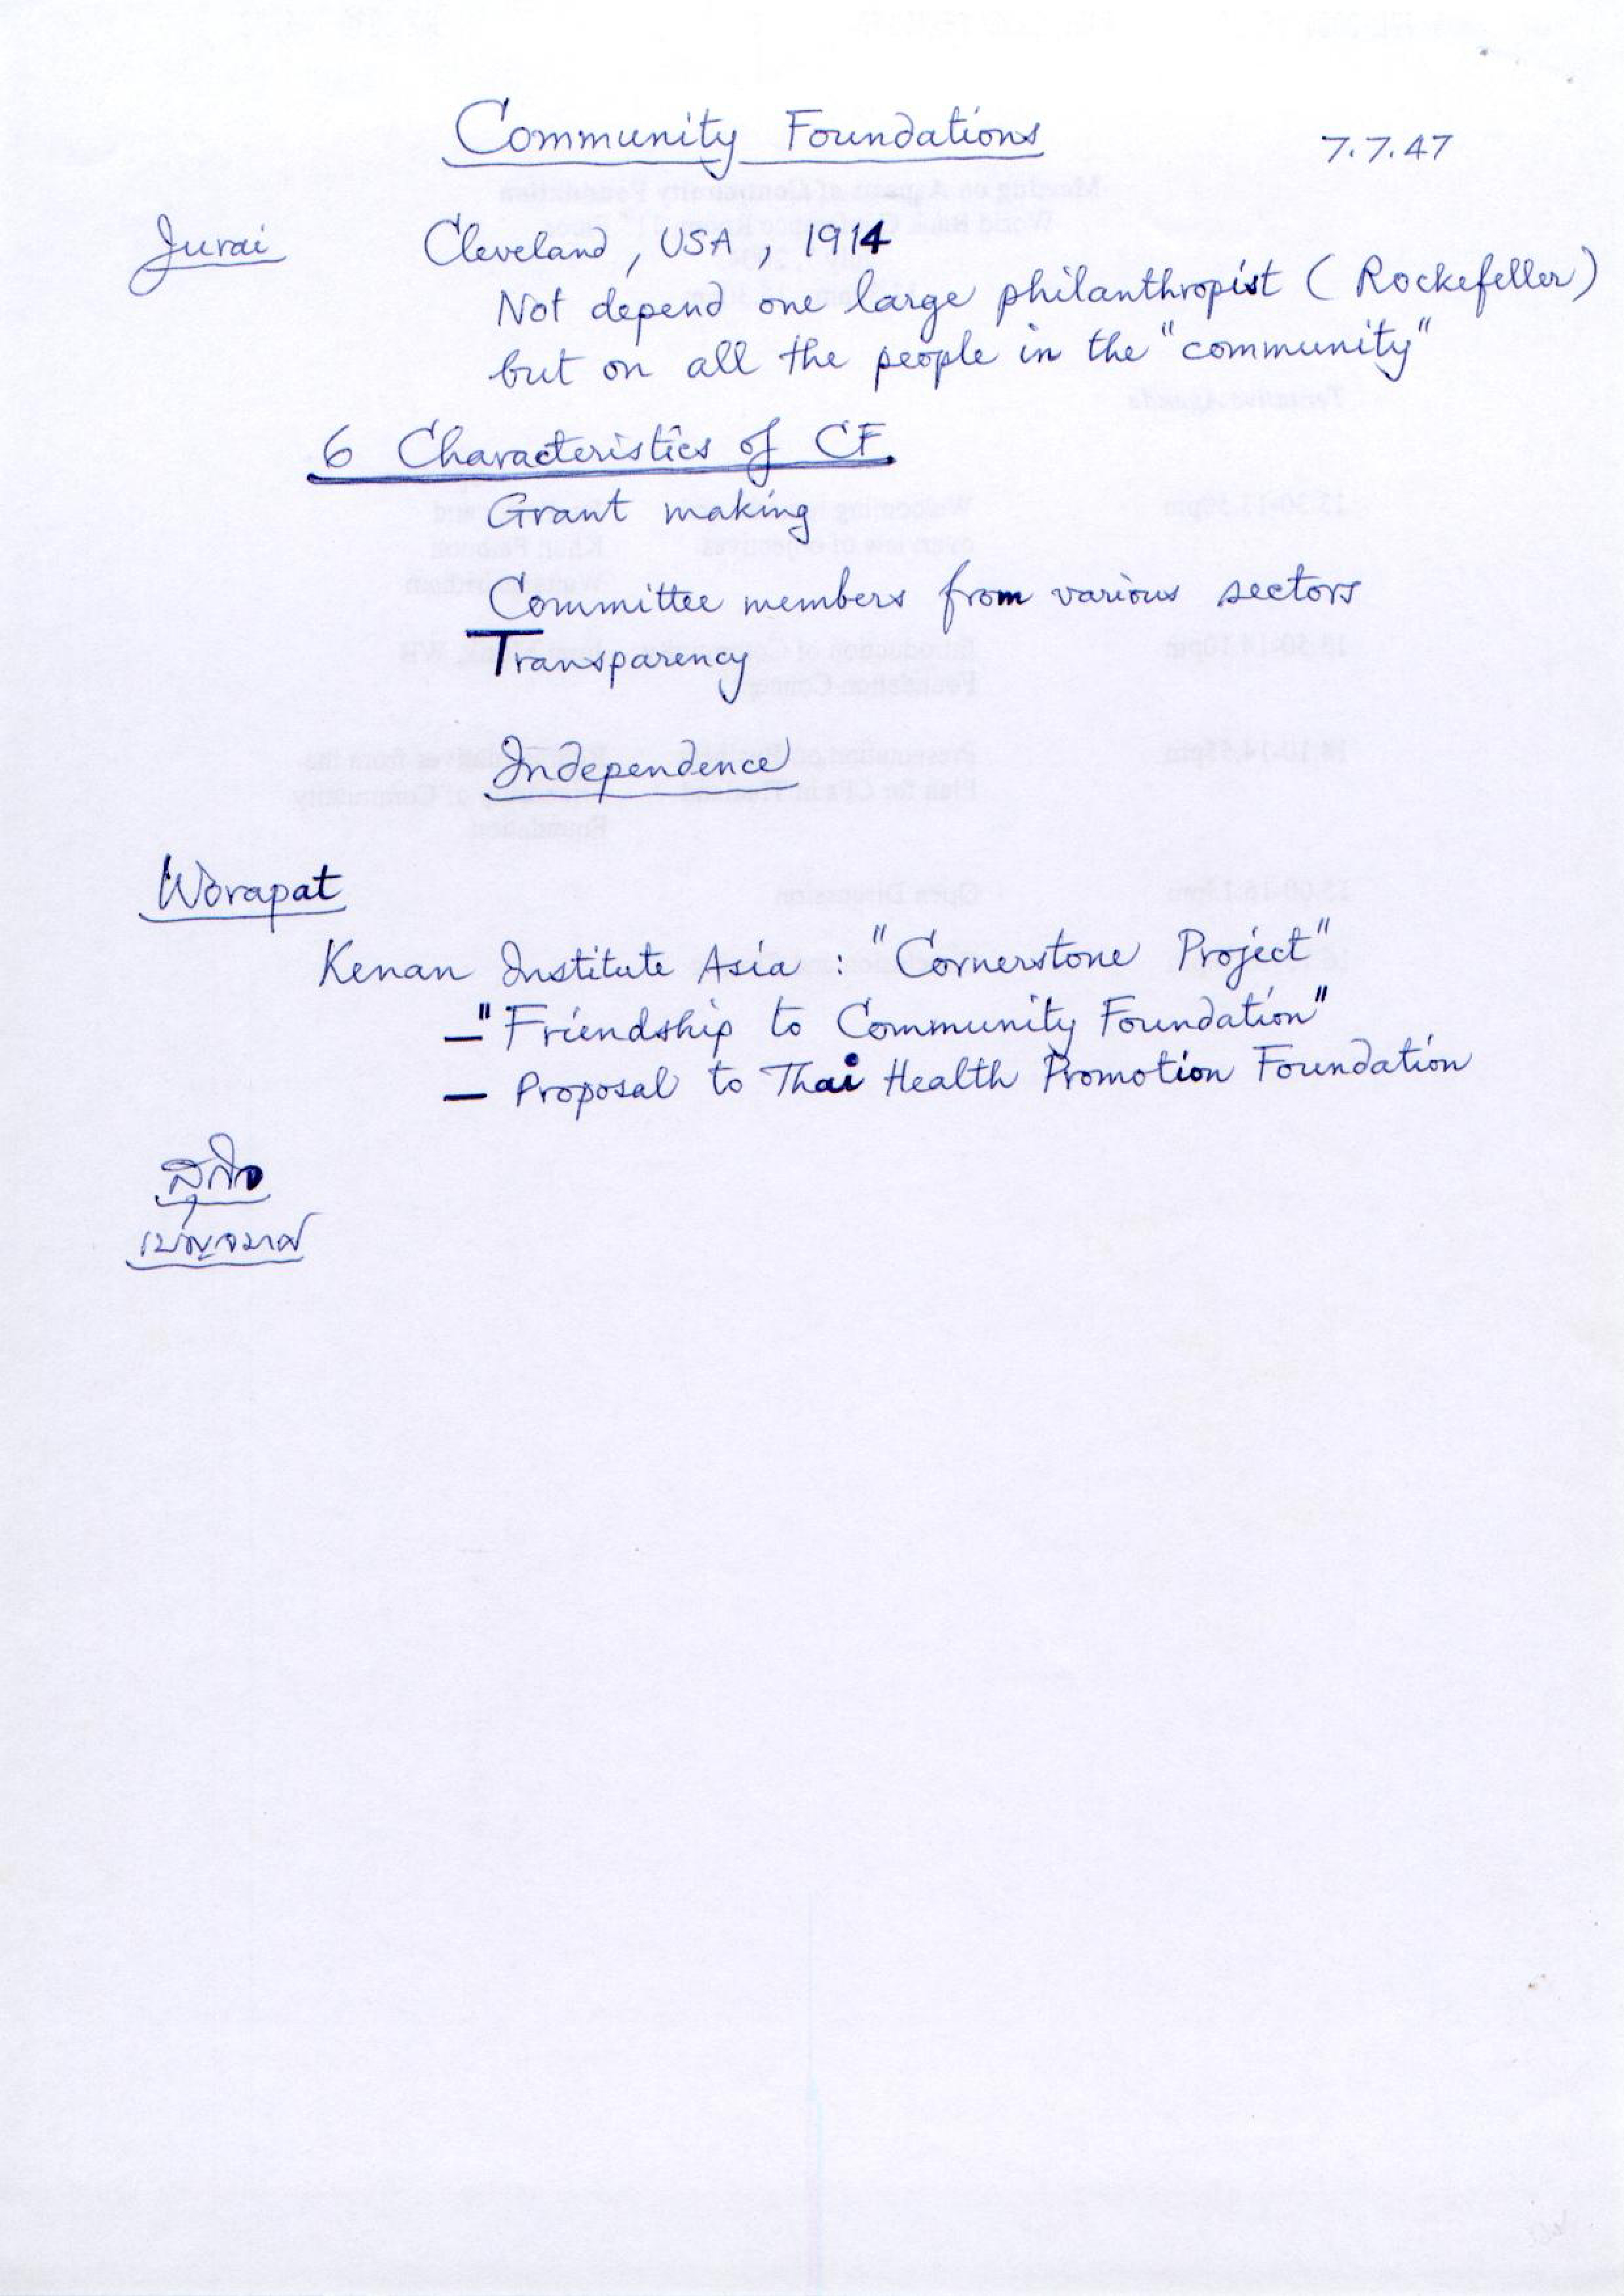 Community Foundations 7.7.47
Jurai Cleveland, USA, 1914
Not depend one large philanthropist (Rockefeller)
but on all the people in the "community"
6 Characteristics of CF
Grant making
Committee members from various sectors
Transparency
Independence
Worapat
Kenan Institute Asia : "Cornerstone Project"
— "Friendship to Community Foundation"
— Proposal to Thai Health Promotion Foundation
สุกิจ
เบญจมาศ